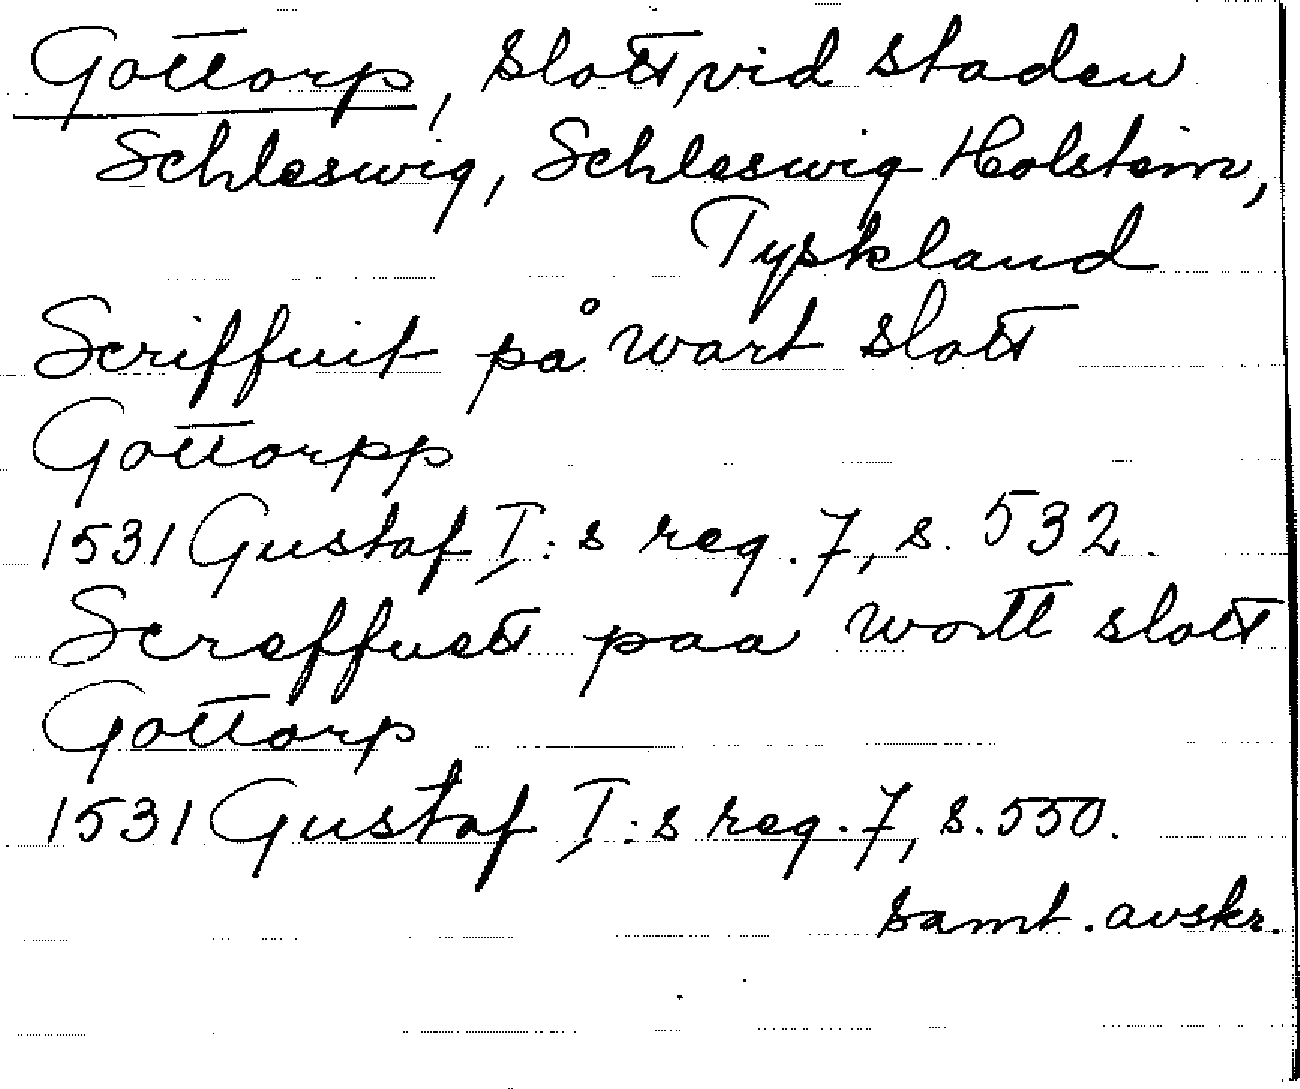 Gottorp, slott vid staden
Schleswig, Schleswig Holstein,
Tyskland
Scriffuit på wart slott
Gottorpp
1531 Gustaf I:s reg. 7, s. 532.
Screffuett paa wortt slott
Gottorp
1531 Gustaf I:s reg. 7, s. 550.
samt. avskr.